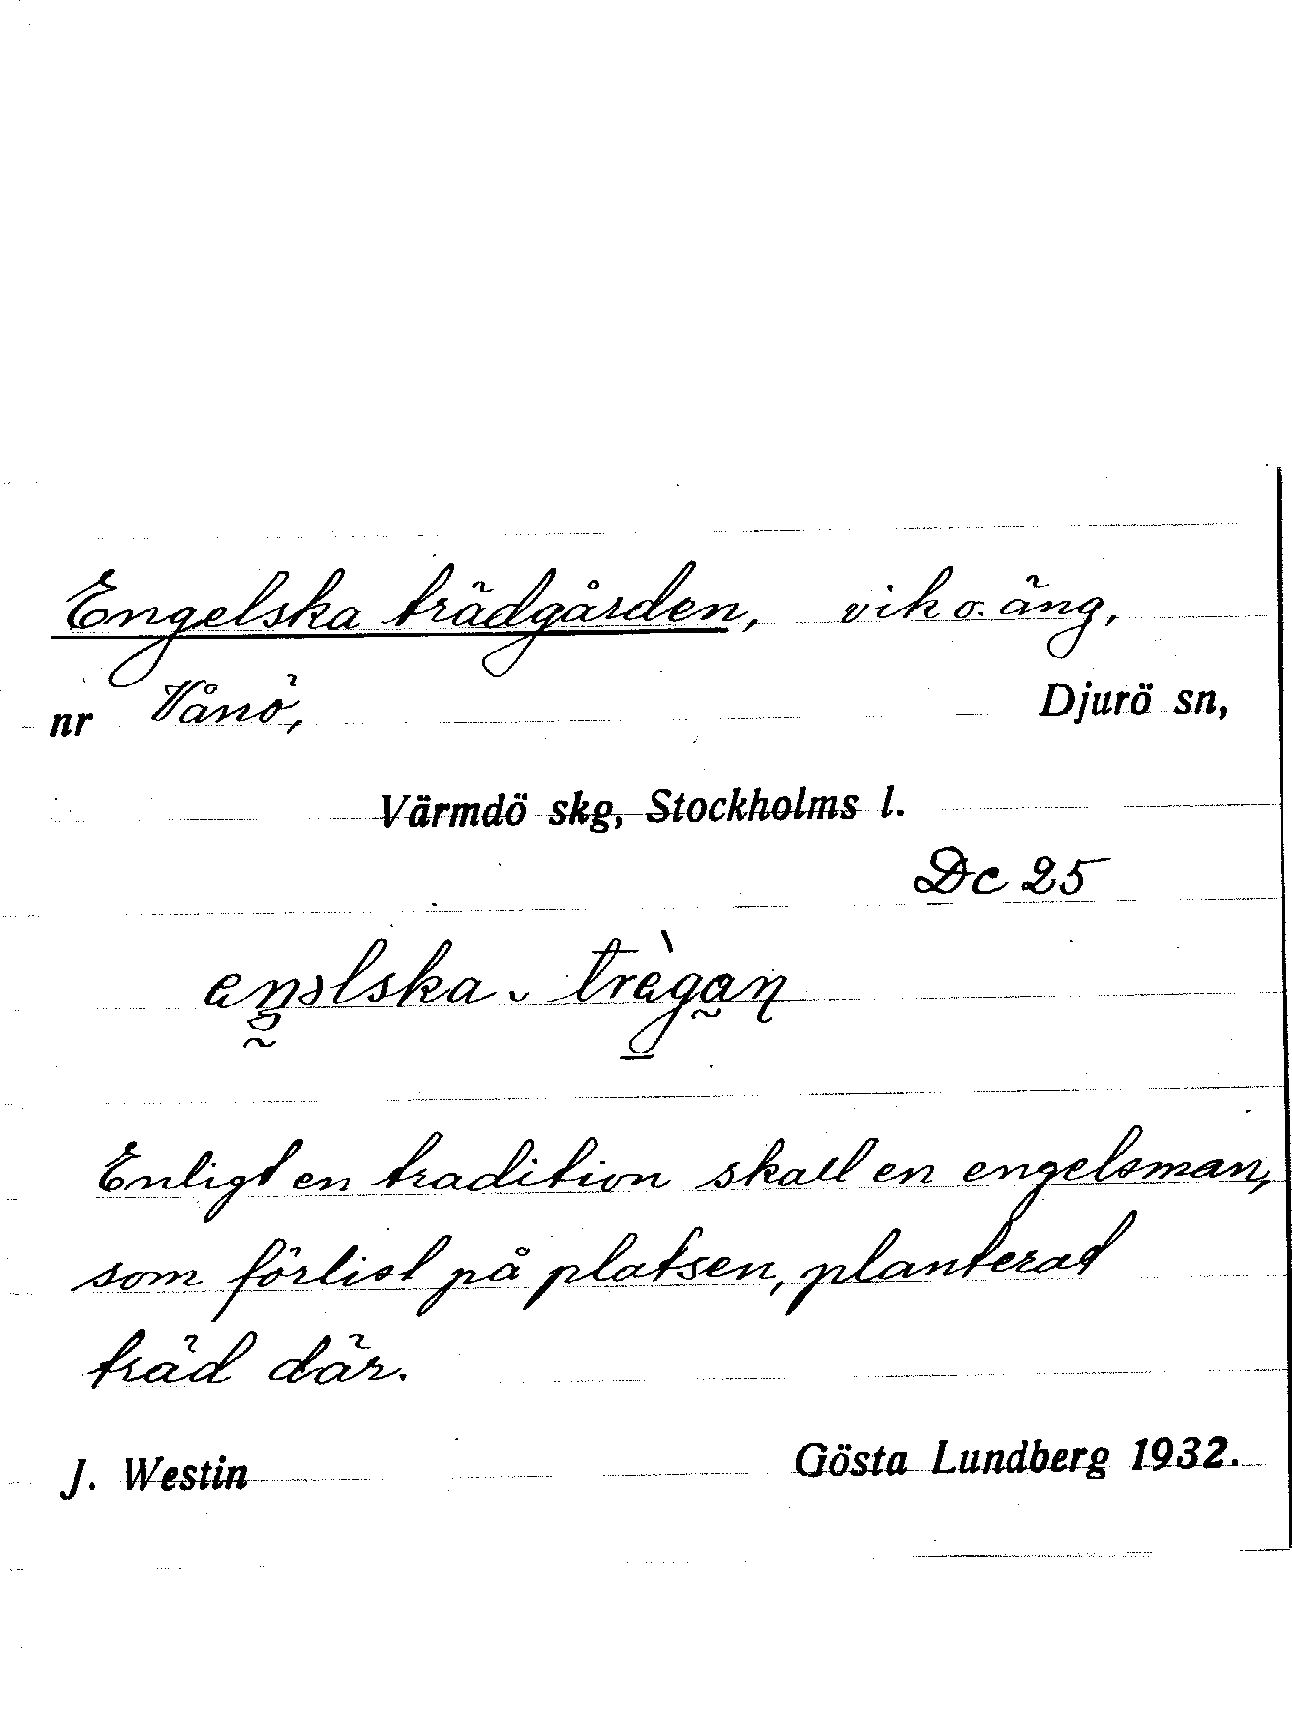 Engelska trädgården, vik o. äng,
nr Vånö, Djurö sn,
Värmdö skg, Stockholms l.
Dc 25
aŋəlska. trègaɳ
Enligt en tradition skall en engelsman,
som förlist på platsen, planterat
träd där.
J. Westin Gösta Lundberg 1932.